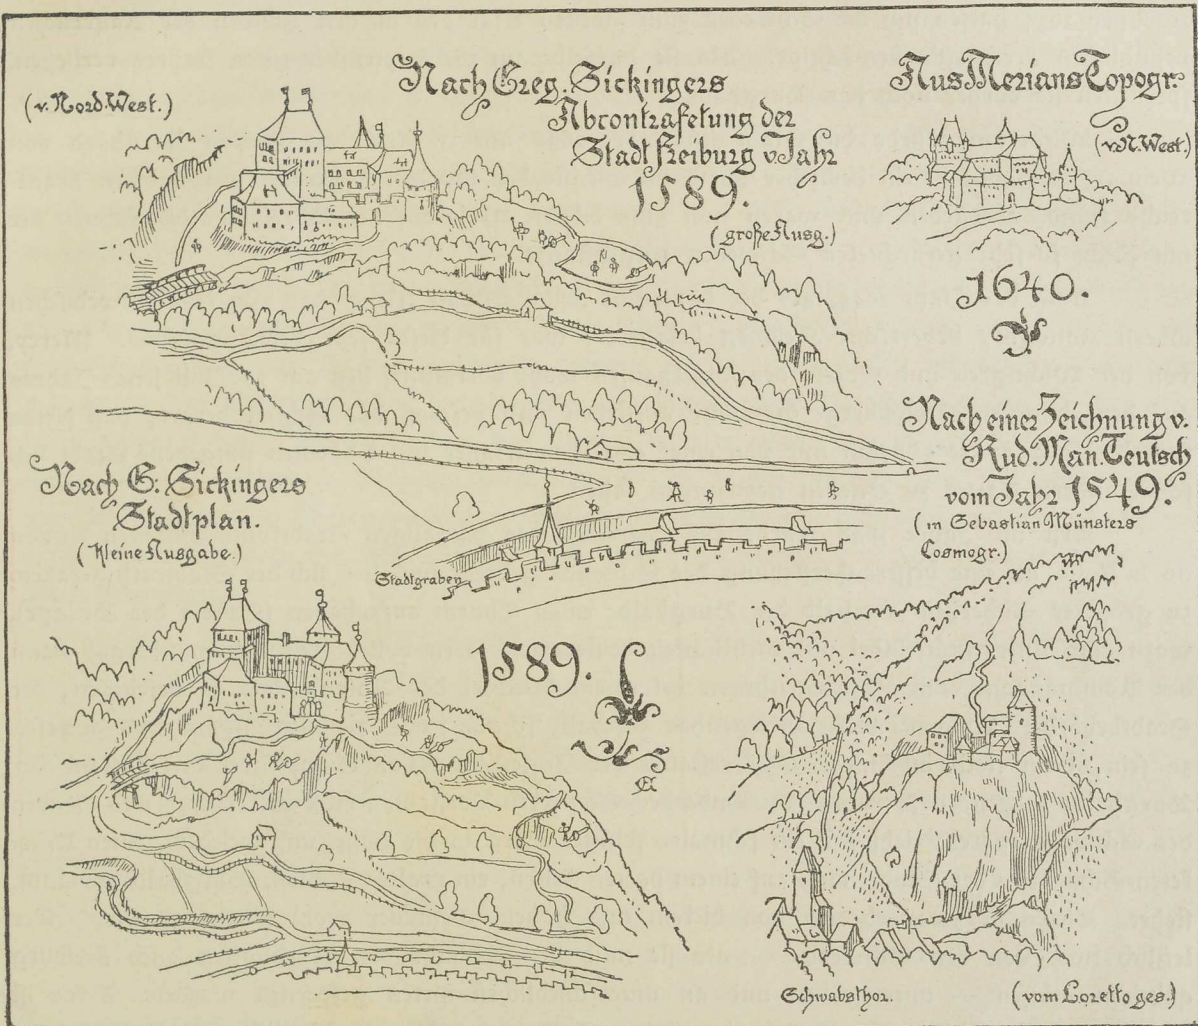 (v. Nord-West.)
Nach Greg. Sickingers
Abcontrafetung der
Stadt Freiburg v. Jahr
1589.
(große Ausg.)
Aus Merians Topogr.
(v. N. West.)
1640.
Nach einer Zeichnung v.
Rud. Man. Teutsch
vom Jahr 1549.
(in Sebastian Münsters
Cosmogr.)
Nach G. Sickingers
Stadtplan.
(Kleine Ausgabe.)
Stadtgraben
1589.
Schwabsthor.
(vom Loretto ges.)